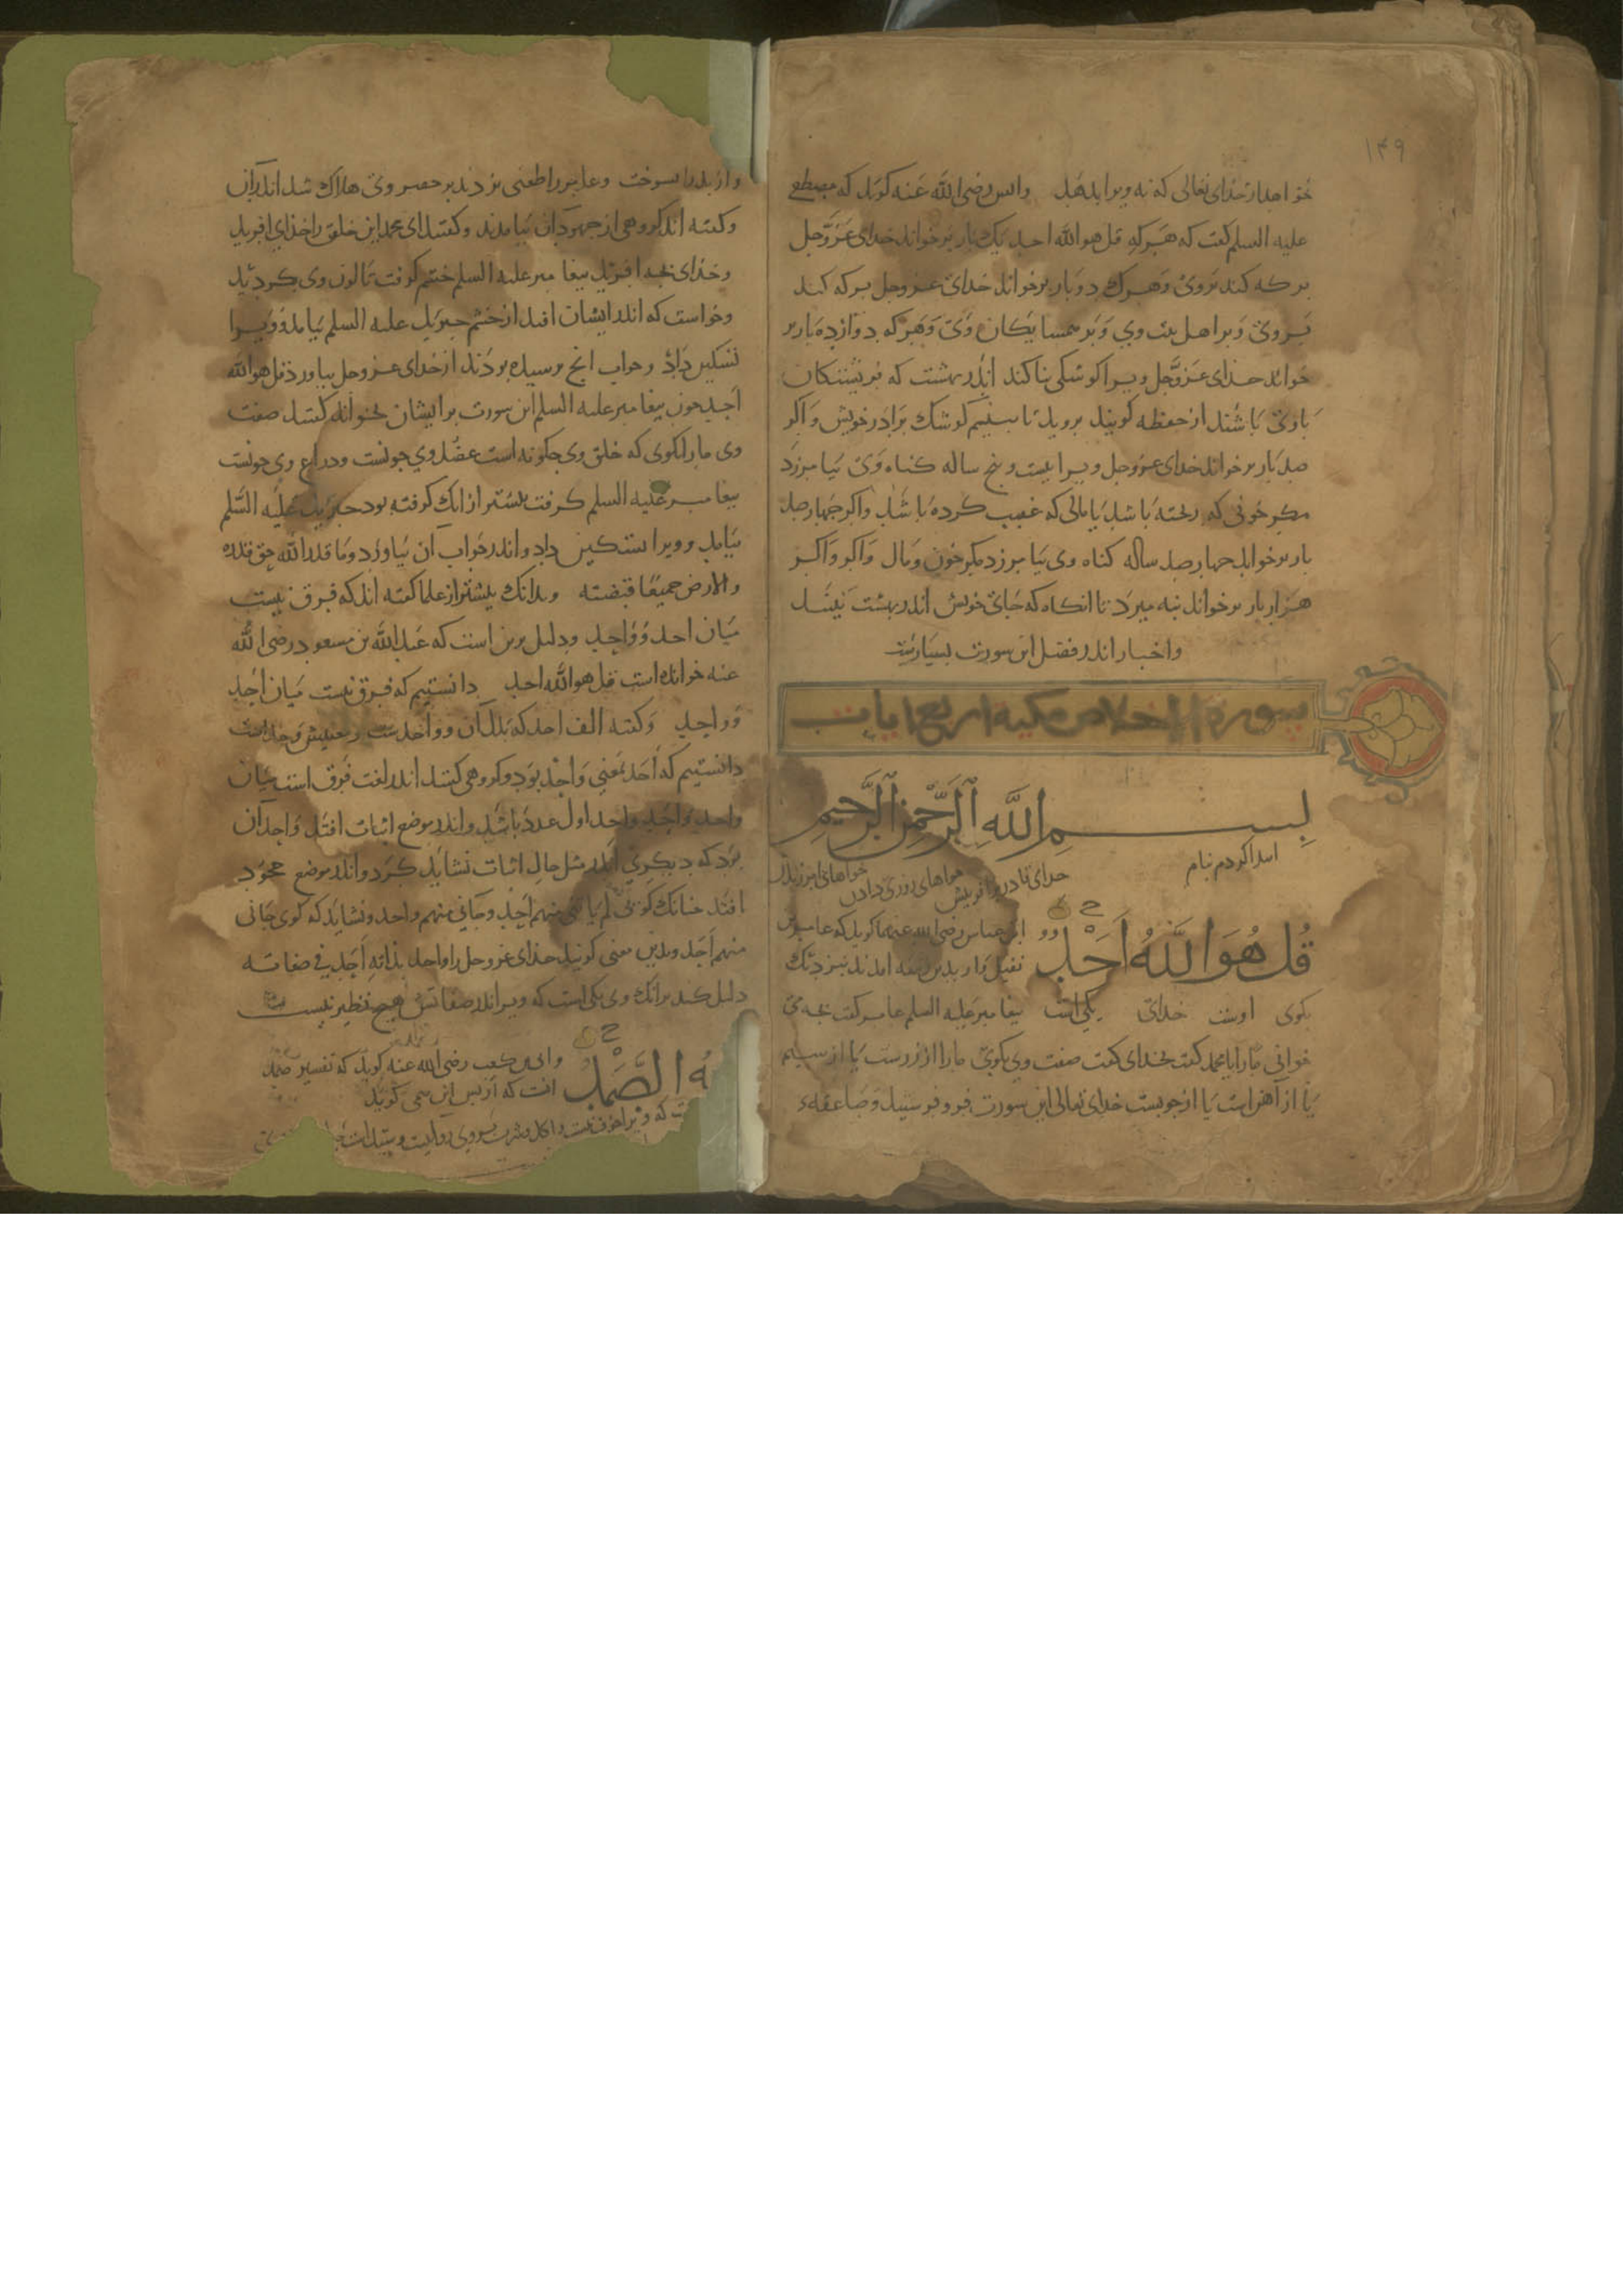 ۱۴۹
خواهد از خدای تعالی که نه ویرا بدهد وانس رضی الله عنه کوید که مصطفی
علیه السلم کفت که هرکه قل هو الله احد یک بار برخواند خدای عزوجل
برکه کند بروی وهرک دو بار برخواند خدای عزوجل برکه کند
بروی وبر اهل بیت وی وبر همسایکان وی وهرکه دوازده بار بر
خواند خدای عزوجل ویرا کوشکی بنا کند اندر بهشت که فریشتکان
با وی باشند از حفظه کویند بروید تا ببینیم کوشک برادر خویش واکر
صد بار برخواند خدای عزوجل ویرا بیست وپنج ساله کناه وی بیامرزد
مکر خونی که ریخته باشد یا مالی که غصب کرده باشد واکر چهارصد
بار برخواند چهارصد ساله کناه وی بیامرزد مکر خون ومال واکر
هزار بار برخواند بنه میرد تا انکاه که جای خویش اندر بهشت نبیند
واخبار اندر فضل این سورت بسیارست
سورة الاخلاص مکیه اربع ایات
بِسمِ اللَّهِ الرَّحمٰنِ الرَّحِيمِ
ابتدا کردم بنام خدای قادر بر افرینش روزی دادن
قُل هُوَ اللَّهُ أَحَدٌ ابن عباس رضی الله عنهما کوید که عامر بن
طفیل واربد بن ربیعه امدند بنزدیک
بکوی اوست خدای یکی است پیغامبر علیه السلم عامر کفت بچه می
خوانی ما را یا محمد کفت بخدای کفت صفت وی بکوی ما را از زرست یا از سیم
یا از آهن است یا از چوبست خدای تعالی این سورت فرو فرستید وصاعقه
واربد را بسوخت وعامر را طعنی بزدند بر خنصر وی هلاک شد اندران
وکفته اند کروهی از جهودان بیامدند وکفتند ای محمد این خلق را خدای افرید
وخدای بچه افرید پیغامبر علیه السلم خشم کرفت تا لون وی بکردید
وخواست که اندر ایشان افتد از خشم جبریل علیه السلم بیامد وویرا
تسکین داد وجواب انچ پرسیده بودند از خدای عزوجل بیاورد قل هو الله
احد چون پیغامبر علیه السلم این سورت بر ایشان بخواند کفتند صفت
وی ما را بکوی که خلق وی چکونه است عضد وی چونست وذراع وی چونست
پیغامبر علیه السلم کرفت بیشتر از انک کرفته بود جبریل علیه السلم
بیامد وویرا تسکین داد واندر جواب آن بیاورد وما قدروا الله حق قدره
والارض جمیعا قبضته وبدانک بیشتر از علما کفته اند که فرق نیست
میان احد وواحد ودلیل برین است که عبد الله بن مسعود رضی الله
عنه خوانده است قل هو الله احد دانستیم که فرق نیست میان احد
وواحد وکفته الف احد که بدل آن وواحدست ومعنیش وحد است
دانستیم که احد بمعنی واحد بود وکروهی کفتند اندر لغت فرق است میان
واحد واحد واحد اول عدد باشد واندر موضع اثبات افتد واحد آن
بود که دیکری اندر مثل حال اثبات نشاید کرد واندر موضع جحود
افتد چنانک کویی لم یاتنی منهم احد وجانی منهم واحد ونشاید که کوی جانی
منهم احد وبدین معنی کویند خدای عزوجل را واحد بذاته احد فی صفاته
دلیل کند برانک وی یکی است که ویرا اندر صفاتش هیچ نظیر نیست
الصَّمَدُ وابی بن کعب رضی الله عنه کوید که تفسیر صمد
انست که از پس این می کوید